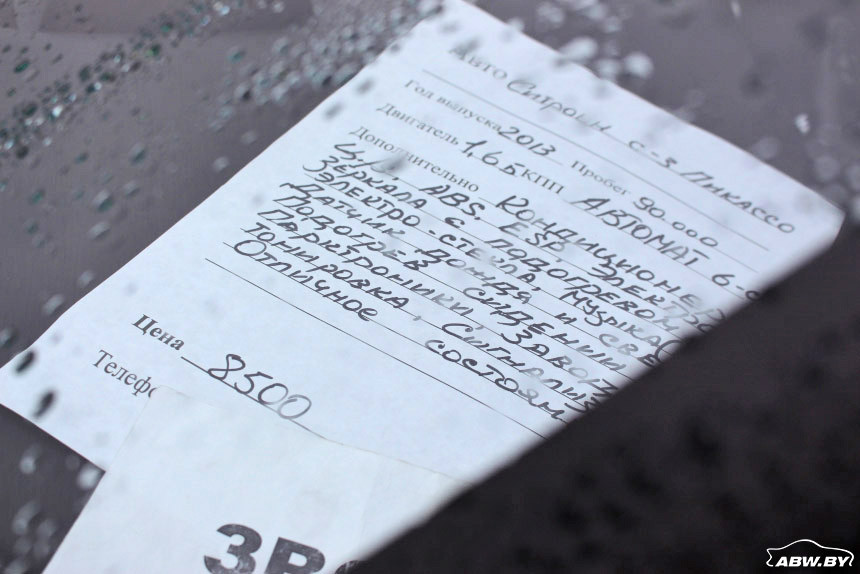 Авто Ситроен С-3 Пикассо
Год выпуска 2013 Пробег 90.000
Двигатель 1,6Б КПП Автомат 6-
Дополнительно Кондиционер
ABS, ESP, Электро
Зеркала с подогревом
Электро-стёкла, музыка
Датчик дождя и све
Подогрев сидений
Парктроники, Завод
тонировка, Сигнализ
Отличное состоян
Цена 8500
Телефо
ЗВ
ABW.BY